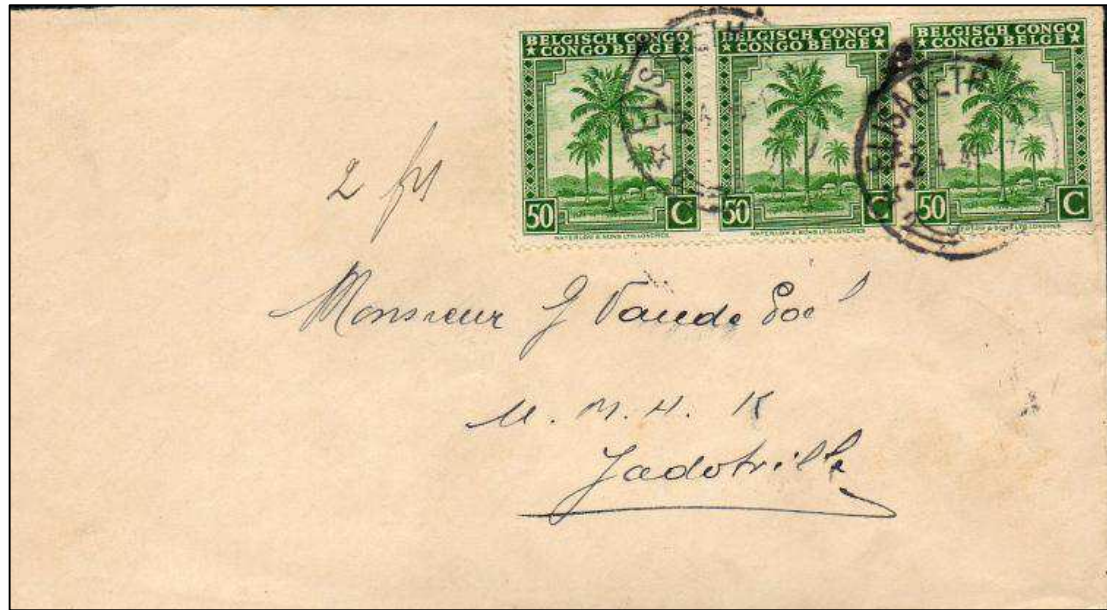 BELGISCH CONGO
★ CONGO BELGE ★
50 C
WATERLOW & SONS LTD. LONDRES
BELGISCH CONGO
★ CONGO BELGE ★
50 C
WATERLOW & SONS LTD. LONDRES
BELGISCH CONGO
CONGO BELGE ★
50 C
WATERLOW & SONS LTD. LONDRES
ELISABETH
2 frs
Monsieur J
U. M. H. K
Jadotville